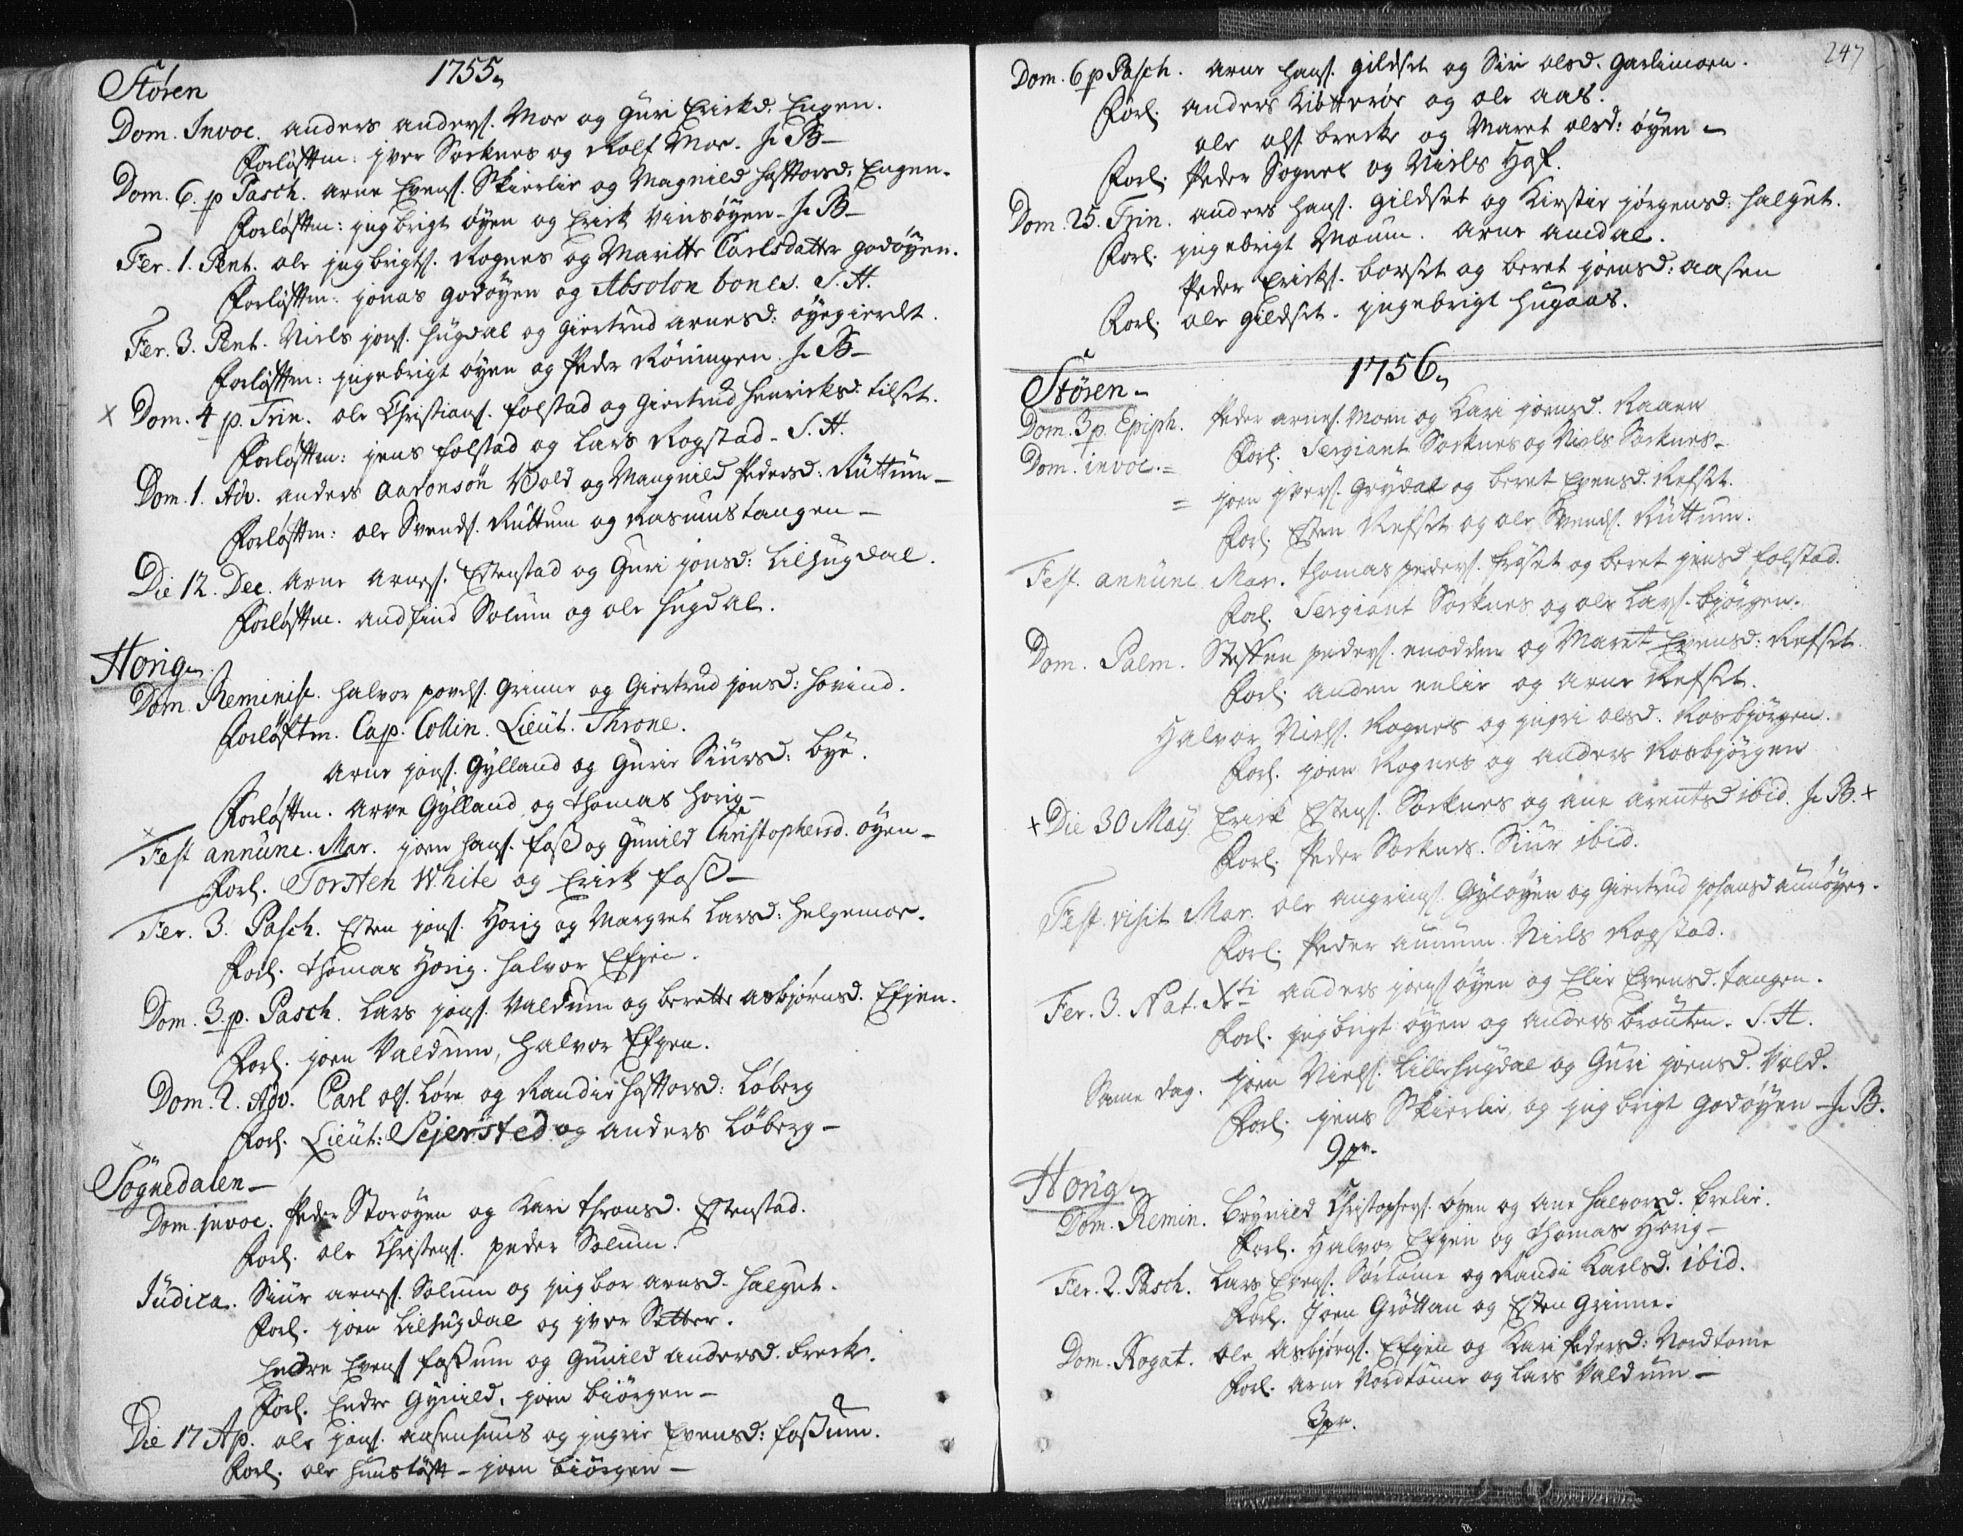 Støren 1755.
Dom. Invoc. anders anders. Moe og Guri Ericksd. Engen.
Forløftm: iver Soeknes og Rolf Moe. J. B.
Dom. 6. p Pasch. Arne Evens. Skierlie og Magnild Hafttorsd: Engen.
Forløftm: ingbrigt øyen og Erick Vinsøyen - J. B.
Fer. 1. Pent. ole ingbrigts. Rognes og Maritte Carlsdatter godøyen.
Forløftm: jonas godøyen og Absolon bones. S. H.
Fer. 3. Pent. Niels jons. Hugdal og Giertrud arnesd: øyegierdt.
Forløftm: ingebrigt øyen og Peder Røningen. J. B.
× Dom. 4 p. Trin. ole Christians. folstad og Giertrud Henricksd. tilset.
Forløftm: jens folstad og Lars Rogstad - S. H.
Dom. 1. Adv. anders Aaronsøn Vold og Mangnild Pedersd: Rüttum
Forløftm: ole Svends. Rüttum og Rasmus tangen
Die 12. Dec. Arne Arnes. Estenstad og Guri jonsd: Lilhugdal.
Forløftm. andfind Solum og ole Hugdal.
Horig
Dom. Reminisc. Halvor povels. Grinne og Giertrud jonsd: Hovind.
Forløftm. Cap. Collin. Lieut. Throne.
Arne jons. Gylland og Gurie Siursd: bye.
Forløftm. Arve Gylland og Thomas Horig
× Fest annunc. Mar. joen Hans. foss og Gunild Christophersd. øyen
Forl. Torsten White og Erick foss
Fer. 3. Pasch. Esten jons. Horig og Margret Larsd: Helgemoe.
Forl. Thomas Horig. Halvor Efjen.
Dom. 3. p. Pasch. Lars jons. Valdum og berette asbjørnsd. Efjen.
Forl. joen Valdum, Halvor Efjen.
Dom. 2. Adv. Carl ols. Løre og Randie Hafttorsd: Løberg
Forl. Lieut: Sejersted og anders Løberg
Søgnedalen
Dom. invoc. Peder Storøyen og Kari Thronsd. Estenstad.
Forl. ole Christens. peder Solum.
Judica. Siur arnes. Solum og ingbor arnsd. Halgut.
Forl. joen Lilhugdal og iver Sætter.
Endre Evens fossum og Gunild andersd. breck.
Forl. Endre Gynild. joen biørgen
Die 17 Ap. ole jons. aasenhuus og ingrie Evensd: fossum.
Forl. ole - joen biørgen
247
Dom. 6 p Pasch. Arne Hans. gildset og Siri olsd. garlimoen.
Forl. anders Kibtterøe og ole aas.
ole ols breck og Maret olsd: øyen
Forl. Peder Sognes og Niels Hof.
Dom. 25. Trin. anders Hans. gildset og Kirstie jørgensd: Halgut.
Forl. ingebrigt Moum. Arne amdal.
Peder Ericks. borset og beret joensd: aasen
Forl. ole gildset. ingebrigt Hugaas.
1756.
Støren
Dom. 3 p. Epiph. Peder arnes. Moen og Kari joensd. Raaen
Forl. Sergiant Soeknes og Niels Soeknes
Dom. invoc. = joen ivers. Grydal og beret Evensd. Refset.
= Forl. Esten Refset og ole Svends. Rüttum.
Fest. annunc. Mar. Thomas peders. frøset og beret jensd folstad.
Forl. Sergiant Soeknes og ole Lars. bjørgen.
Dom. Palm. Steffen peders. enodden og Maret Evensd: Refset.
Forl. anden enlie og Arne Refset.
Halvor Niels. Rognes og ingri olsd. Rosbjørgen.
Forl. joen Rognes og anders Rosbjørgen
× Die 30 May. Erick Estens. Soeknes og ane arentsd ibid. J. B. ×
Forl. Peder Soeknes. Siur ibid.
Fest. visit Mar. ole angrims. Gyløyen og Giertrud johansd aunøyen.
Forl. Peder aunum. Niels Rogstad.
Fer. 3. Nat. Xti anders joens øyen og Elie Evensd. tangen.
Forl. ingbrigt øyen og anders brøuten. S. H.
Same dag. joen Niels. Lillehugdal og Guri joensd. Vold.
Forl. jens Skierlie og ingbrigt Godøyen - J. B.
9 pr.
Horig
Dom. Remin. Brynild Christophers. øyen og ane Halvorsd. brelie.
Forl. Halvor Efjen og Thomas Horig
Fer. 2. Pasch. Lars Evens. Sørtome og Randi Karlsd. ibid.
Forl. Joen Grøttan og Esten Grinne.
Dom. Rogat. ole Asbjørns. Efjen og Kari Pedersd: Nordtome
Forl. Arne Nordtome og Lars Valdum
3 pr.